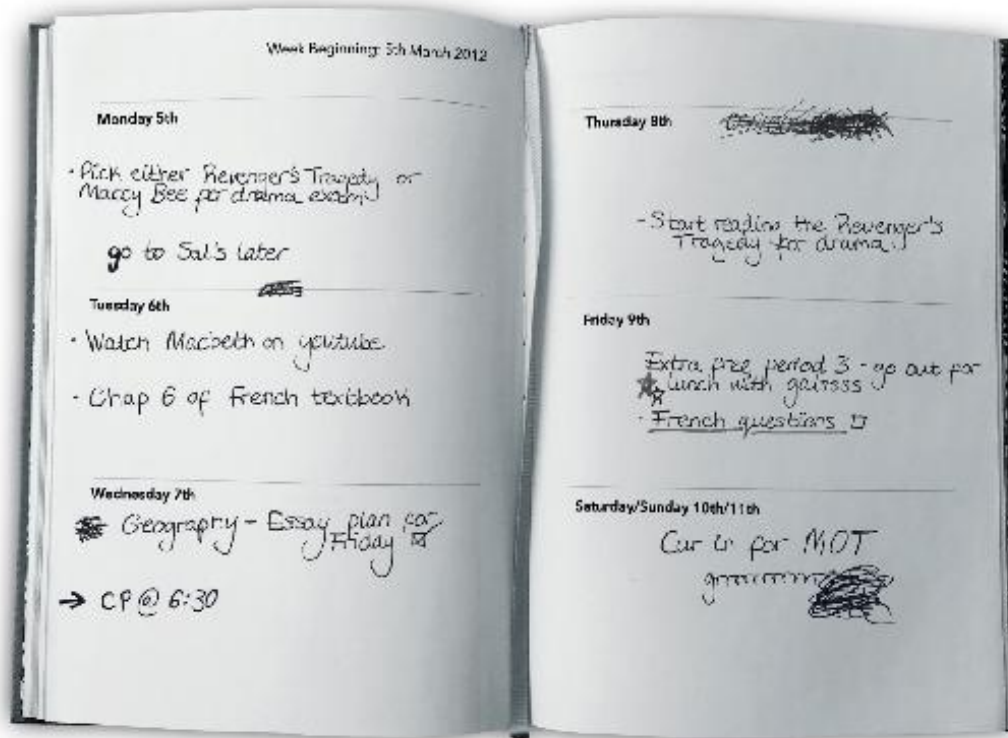 Week Beginning: 5th March 2012
Monday 5th
· Pick either Revenger's Tragedy or
Marcy Bee for drama exam!
go to Sal's later
Tuesday 6th
· Watch Macbeth on youtube
· Chap 6 of French textbook
Wednesday 7th
Geography - Essay plan for
Friday
→ CP @ 6:30
Thursday 8th
- Start reading the Revenger's
Tragedy for drama
Friday 9th
Extra free period 3 - go out for
lunch with galssss
· French questions
Saturday/Sunday 10th/11th
Car in for MOT